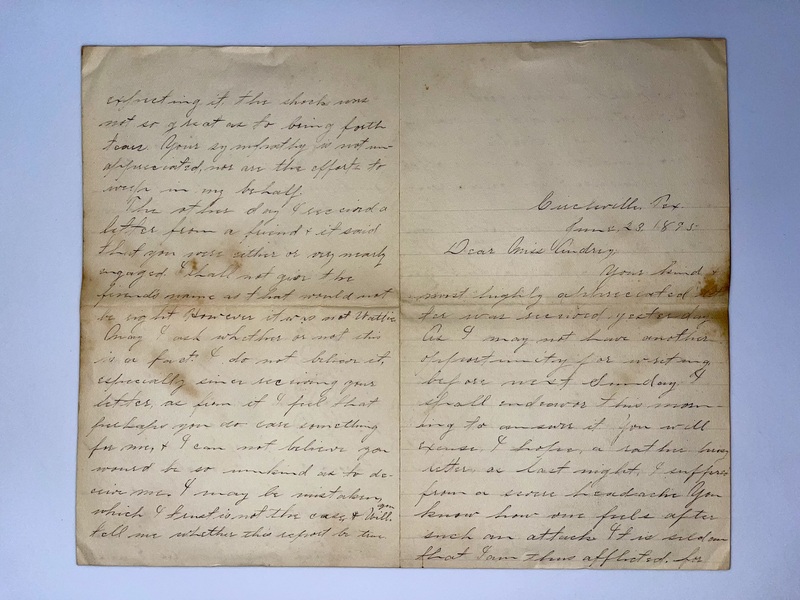 expecting it, the shock was
not so great as to bring forth
tears. Your sympathy is not un-
appreciated, nor are the efforts to
weep in my behalf.
The other day I received a
letter from a friend & it said
that you were either or very nearly
engaged. I shall not give the
friend's name as that would not
be right. However it was not Hattie.
May I ask whether or not this
is a fact. I do not believe it,
especially since receiving your
letter, as from it I feel that
perhaps you do care something
for me, & I can not believe you
would be so unkind as to de-
ceive me. I may be mistaken,
which I trust is not the case, & you will
tell me whether this report be true
Circleville, Tex.
June, 29, 1895
Dear Miss Audrey,
Your kind &
most highly appreciated let-
ter was received yesterday.
As I may not have another
opportunity for writing
before next Sunday I
shall endeavor this morn-
ing to answer it. You will
excuse, I hope, a rather
letter, as last night, I suffered
from a severe headache. You
know how one feels after
such an attack. It is seldom
that I am thus afflicted, for